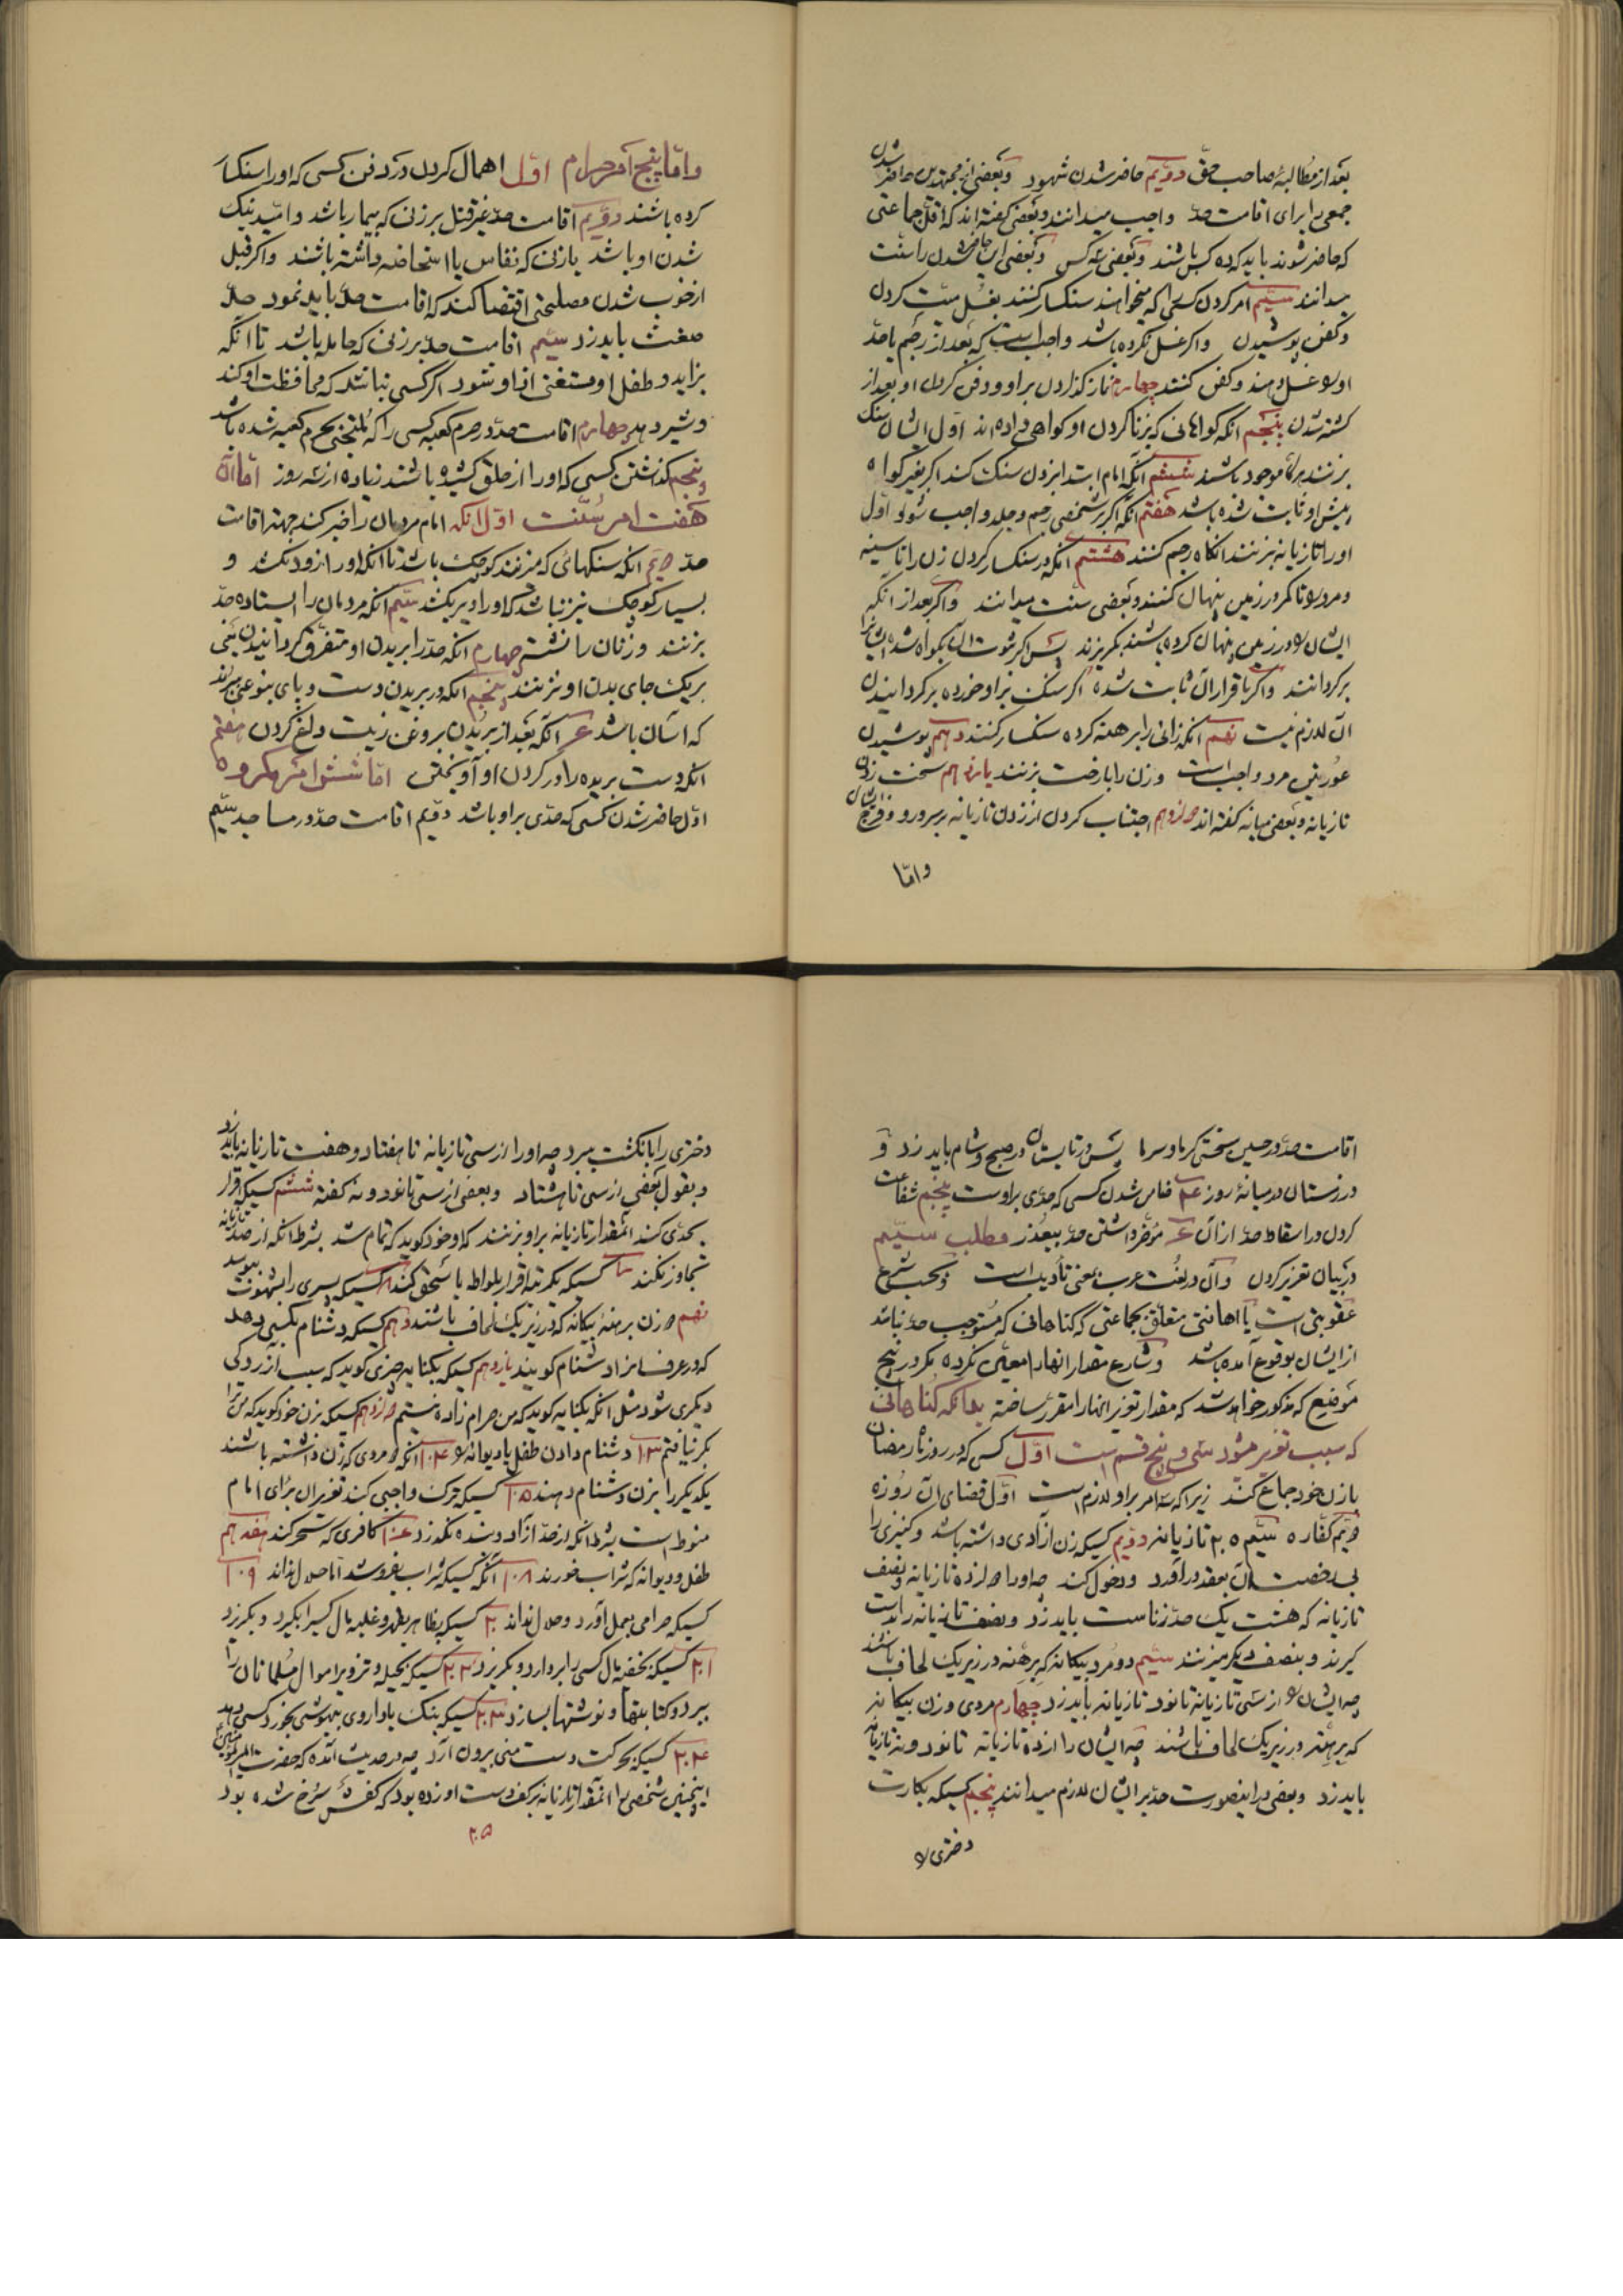 بعد از مطالبهٔ صاحب حق دویّم حاضر شدن شهود و بعضی از مجتهدین حاضر شدن
جمعی برای اقامت حدّ واجب میدانند و بعضی گفته‌اند که اقل جماعتی
که حاضر شوند باید که ده کس باشند و بعضی سه کس و بعضی این حاضر شدن را سنّت
میدانند سیّم امر کردن کسی را که میخواهند سنکسار کنند بغسل میّت کردن
و کفن پوشیدن و اکر غسل نکرده باشد واجب است که بعد از رجم یا حدّ
او را غسل دهند و کفن کنند چهارم نماز کذاردن بر او و دفن کردن او بعد از
کشته شدن پنجم آنکه کواهانی که بزنا کردن او کواهی داده‌اند اوّل ایشان سنک
بزنند هر کاه موجود باشند ششم آنکه امام ابتدا بزدن سنک کند اکر بغیر کواه
پیش او ثابت شده باشد هفتم آنکه اکر بر شخصی رجم و جلد واجب شود اوّل
او را تازیانه بزنند آنکاه رجم کنند هشتم آنکه در سنکسار کردن زن را تا سینه
و مرد را تا کمر در زمین پنهان کنند و بعضی سنّت میدانند و اکر بعد از آنکه
ایشان را در زمین پنهان کرده باشند بکریزند پس اکر ثبوت آن بکواه شده ایشان را
برکردانند و اکر باقرار آن ثابت شده اکر سنک بر او خورده برکردانیدن
آن لازم نیست نهم آنکه زانی را برهنه کرده سنکسار کنند دهم پوشیدن
عورتین مرد واجب است و زن را با رخت بزنند یازدهم سخت زدن
تازیانه و بعضی میانه کفته‌اند دوازدهم اجتناب کردن از زدن تازیانه بر سر و رو و فرج ایشان
و امّا
و امّا پنج امر حرام اوّل اهمال کردن در دفن کسی که او را سنکسار
کرده باشند دویّم اقامت حدّ غیر قتل بر زنی که بیمار باشد و امّید نیک
شدن او باشد یا زنی که نفاس یا استحاضه داشته باشند و اکر قبل
از خوب شدن مصلحتی اقتضا کند که اقامت حدّ باید نمود حدّ
ضغث باید زد سیّم اقامت حدّ بر زنی که حامله باشد تا آنکه
بزاید و طفل او مستغنی از او شود اکر کسی نباشد که محافظت او کند
و شیر دهد چهارم اقامت حدّ در حرم کعبه کسی را که ملتجی بحرم کعبه شده باشد
پنجم کذاشتن کسی که او را از حلق کشیده باشند زیاده از سه روز امّا آن
هفت امر سنّت اوّل آنکه امام مردمان را خبر کند جهة اقامت
حدّ دویّم آنکه سنکهائی که میزنند کوچک باشد تا آنکه او را زود نکشد و
بسیار کوچک نیز نباشد که او را دیر بکشد سیّم آنکه مردان را ایستاده حدّ
بزنند و زنان را نشسته چهارم آنکه حدّ را بر بدن او متفرق کردانیدن یعنی
بر یک جای بدن او نزنند پنجم آنکه در بریدن دست و پای بنوعی ببرند
که آسان باشد ششم آنکه بعد از بریدن بروغن زیت داغ کردن هفتم
آنکه دست بریده را در کردن او آویختن امّا شش امر مکروه
اوّل حاضر شدن کسی که حدّی بر او باشد دویّم اقامت حدّ در مساجد سیّم
اقامت حدّ در حین سختی کرما و سرما پس در تابستان در صبح و شام باید زد و
در زمستان در میانهٔ روز ضامن شدن کسی که حدّی بر اوست پنجم شفاعت
کردن در اسقاط حدّ از آن مؤخّر داشتن حدّ بیعذر مطلب سیّم
در بیان تعزیر کردن و آن در لغت عرب بمعنی تأدیب است و بحسب شرع
عقوبتی است یا اهانتی متعلّق بجماعتی که کناهانی که مستوجب حدّ نباشد
از ایشان بوقوع آمده باشد و شارع مقدار آنها را معیّن نکرده مکر در پنج
موضع که مذکور خواهد شد که مقدار تعزیر آنها را مقرّر ساخته بدانکه کناهانی
که سبب تعزیر میشود سی و پنج قسم است اوّل کسی که در روز ماه رمضان
با زن خود جماع کند زیرا که سه امر بر او لازم است اوّل قضای آن روزه
دویّم کفّاره سیّم ۲۵ تازیانه دویّم کسیکه زن آزادی داشته باشد و کنیزی را
بی رخصت آن بعقد درآورد و دخول کند چه او را دوازده تازیانه و نصف
تازیانه که هشت یک حدّ زناست باید زد و نصف تازیانه را بدست
کیرند و بنصف دیکر میزنند سیّم دو مرد بیکانه که برهنه در زیر یک لحاف باشند
چه ایشان را از سی تازیانه تا نود تازیانه باید زد چهارم مردی و زن بیکانه
که برهنه در زیر یک لحاف باشند چه ایشان را از ده تازیانه تا نود و نه تازیانه
باید زد و بعضی در اینصورت حدّ بر ایشان لازم میدانند پنجم کسیکه بکارت
دختری را
دختری را بانکشت ببرد چه او را از سی تازیانه تا هفتاد و هفت تازیانه باید زد
و بقول بعضی از سی تا هشتاد و بعضی از سی تا نود و نه کفته ششم کسیکه اقرار
بحدّی کند آنمقدار تازیانه بر او بزنند که او خود کوید که تمام شد بشرط آنکه از صد تازیانه
تجاوز نکند کسیکه یکمرتبه اقرار بلواط یا سحق کند کسیکه پسری را بشهوت ببوسد
نهم دو زن برهنهٔ بیکانه که در زیر یک لحاف باشند دهم کسیکه دشنام بکسی دهد
که در عرف آنرا دشنام کویند یازدهم کسیکه بکنایه چیزی کوید که سبب آزردکی
دیکری شود مثل آنکه بکنایه کوید که من حرام زاده نیستم دوازدهم کسیکه بزن خود کوید که من ترا
بکر نیافتم ۱۳ دشنام دادن طفل یا دیوانه را ۱۰۴ آنکه دو مردی که زن داشته باشند
یکدیکر را بزن دشنام دهند ۱۰۵ کسیکه ترک واجبی کند تعزیر آن برای امام
منوط است بشرط آنکه از حدّ آزاد و بنده نکذرد کافری که سحر کند هفدهم
طفل و دیوانه که شراب خورند ۱۰۸ آنکه کسیکه شراب بفروشد امّا حلال نداند ۱۰۹
کسیکه حرامی بعمل آورد و حلال نداند ۲۰ کسیکه بظاهر بقهر و غلبه مال کسی را بکیرد و بکریزد
۲۰۱ کسیکه بخفیه مال کسی را بردارد و بکریزد ۲۰۲ کسیکه بحیله و تزویر اموال مسلمانان را
ببرد و کتابتها و نوشتها بسازد ۲۰۳ کسیکه بنک یا داروی بیهوشی بخورد کسی دهد
۲۰۴ کسیکه بحرکت دست منی بیرون آرد چه در حدیث آمده که حضرت امیر المؤمنین
اینچنین شخصی را آنمقدار تازیانه بر کف دست او زده بود که کفش سرخ شده بود
۲۰۵